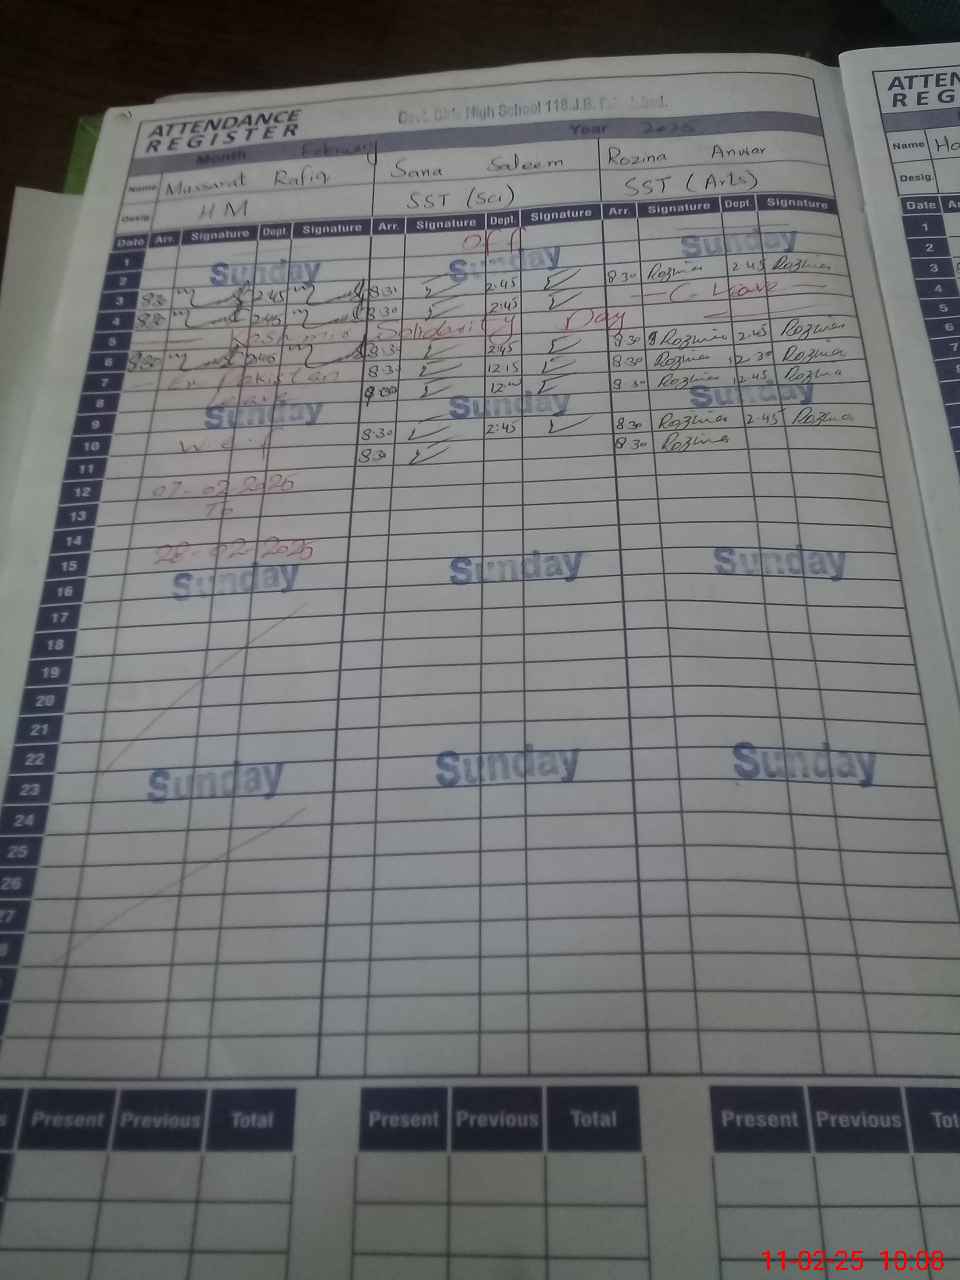 Govt. Girls High School 118 J.B.
ATTENDANCE
REGISTER
Month February Year 2025
Name Mussarat Rafiq Sana Saleem Rozina Anwar
Desig. HM SST (Sci) SST (Arts)
Date Arr. Signature Dept. Signature Arr. Signature Dept. Signature Arr. Signature Dept. Signature
1 Off
2 Sunday Sunday Sunday
3 8:30 2:45 8:30 2:45 8:30 Rozina 2:45 Rozina
4 8:30 2:45 8:30 2:45 C. Leave
5 Kashmir Solidarity Day
6 8:30 2:45 8:30 2:45 8:30 Rozina 2:45 Rozina
7 Ex Pakistan 8:30 12:15 8:30 Rozina 12:30 Rozina
8 Leave 8:00 8:30 Rozina 12:45 Rozina
9 Sunday Sunday Sunday
10 w.e.f 8:30 2:45 8:30 Rozina 2:45 Rozina
11 8:30 8:30 Rozina
12 07-02-2025
13 To
14
15 28-02-2025
16 Sunday Sunday Sunday
17
18
19
20
21
22
23 Sunday Sunday Sunday
24
25
26
27
Present Previous Total Present Previous Total Present Previous
ATTEN
REG
Name
Desig.
Date
1
2
3
4
5
6
7
8
11-02-25 10:08